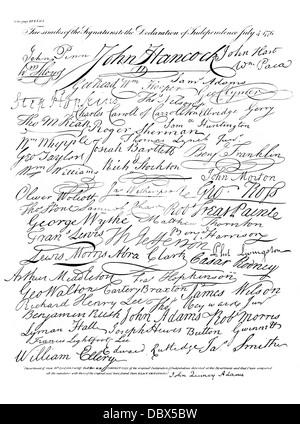 Fac-similes of the Signatures to the Declaration of Independence July 4. 1776.
John Penn John Hancock John Hart
Wm Paca
Geo Read Wm Hooper Saml Adams
Step Hopkins Geo Clymer
Charles Carroll of Carrollton Elbridge Gerry
Tho M:Kean Roger Sherman Saml Huntington
Wm Whipple Thomas Lynch Junr
Geo Taylor Josiah Bartlett Benj Franklin
Wm Williams Richd Stockton John Morton
Oliver Wolcott Jno Witherspoon Geo Ross
Tho Stone Samuel Chase Robt Treat Paine
George Wythe Matthew Thornton
Frans Lewis Th Jefferson Benj Harrison
Lewis Morris Abra Clark Caesar Rodney
Phil Livingston
Arthur Middleton Fras Hopkinson
Geo Walton Carter Braxton James Wilson
Richard Henry Lee Thos Heyward Junr
Benjamin Rush John Adams Robt Morris
Lyman Hall Joseph Hewes Button Gwinnett
Francis Lightfoot Lee
William Ellery Edward Rutledge Jas Smith
John Quincy Adams
alamy
DBX5BW